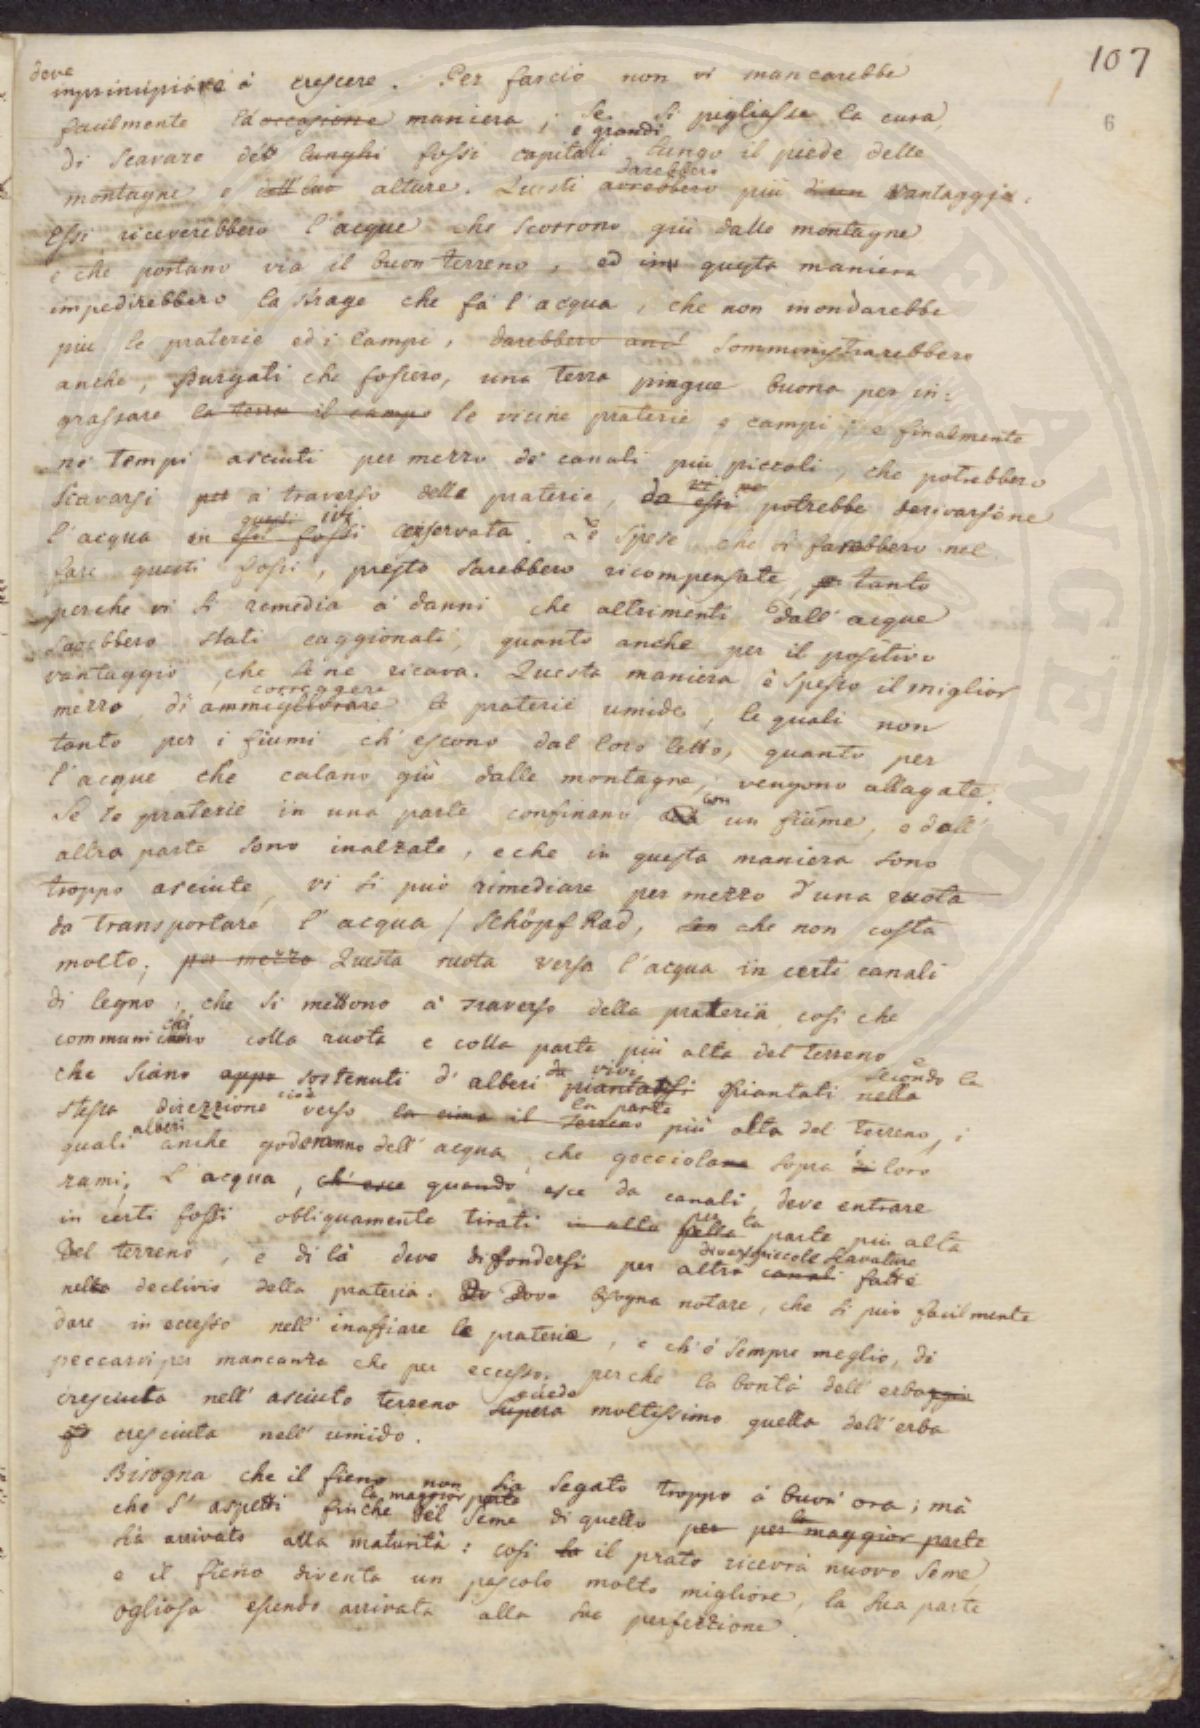 107
6
dove
inprincipiare à crescere. Per farcio non vi mancarebbe
facilmente la occasione maniera; se si pigliasse la cura
e grandi
di scavare dei lunghi fossi capitali lungo il piede delle
darebbero
montagne e alture. Questi avrebbero più di un vantaggio.
Essi riceverebbero l'acque che scorrono giù dalle montagne
e che portano via il buon terreno, ed in questa maniera
impedirebbero la strage che fà l'acqua, che non inondarebbe
piu le praterie ed i campi, darebbero anc somministrarebbero
anche, purgati che fossero, una terra pingue buona per in:
grassare la terra il campo le vicine praterie e campi; e finalmente
ne' tempi asciuti per mezzo de' canali più piccoli, che potrebbero
scavarsi per à traverso delle praterie, da essi potrebbe derivarsene
questi ivi
l'acqua in essi fossi conservata. Le spese che si farebbero nel
fare questi fossi, presto sarebbero ricompensate, tanto
perche vi si remedia à danni che altrimenti dall'acque
sarebbero stati caggionati, quanto anche per il positivo
vantaggio, che se ne ricava. Questa maniera è spesso il miglior
correggere
mezzo, di ammigliorare le praterie umide, le quali non
tanto per i fiumi ch'escono dal loro letto, quanto per
l'acque che calano giù dalle montagne, vengono allagate.
con
Se le praterie in una parte confinano un fiume, e dall'
altra parte sono inalzate, e che in questa maniera sono
troppo asciute, vi si può rimediare per mezzo d'una ruota
da transportare l'acqua / Schöpf Rad, che non costa
molto; per mezzo Questa ruota versa l'acqua in certi canali
di legno, che si mettono à traverso della prateria cosi che
communichino colla ruota e colla parte più alta del terreno e
da vivi secondo la
che siano appo sostenuti d'alberi piantati nella
cioè la parte
stessa direzzione verso la cima il terreno più alta del terreno, i
alberi
quali anche goderanno dell'acqua che gocciola sopra i loro
rami. L'acqua, ch'esce quando esce da canali, deve entrare
per la
in certi fossi obliquamente tirati in alla nella parte più alta
diverse piccole scavature
del terreno, e di là deve diffondersi per altri canali fatte
nella declivio della prateria. Do Dove bisogna notare, che si può facilmente
dare in eccesso nell'inaffiare le praterie, e ch'è sempre meglio, di
peccarvi per mancanza che per eccesso, perche la bontà dell'erbaggio
eccede
cresciuta nell'asciuto terreno supera moltissimo quella dell'erba
cresciuta nell'umido.
Bisogna che il fieno non sia segato troppo à buon'ora; mà
la maggior parte
che s'aspetti finche del seme di quello per per la maggior parte
sià arrivato alla maturità: cosi la il prato ricevrà nuovo seme,
e il fieno diventa un pascolo molto migliore, la sua parte
ogliosa essendo arrivata alla sua perfezzione.